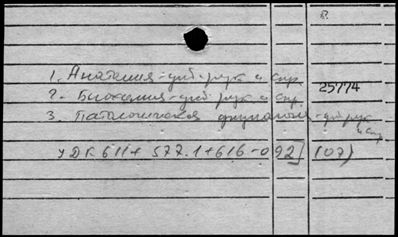 В.
1. Анатомия - учеб. рук. и спр.
25774
2. Биохимия - учеб. рук. и спр.
3. Патологическая физиология - учеб. рук.
и спр.
УДК 611+577.1+616-092](07)